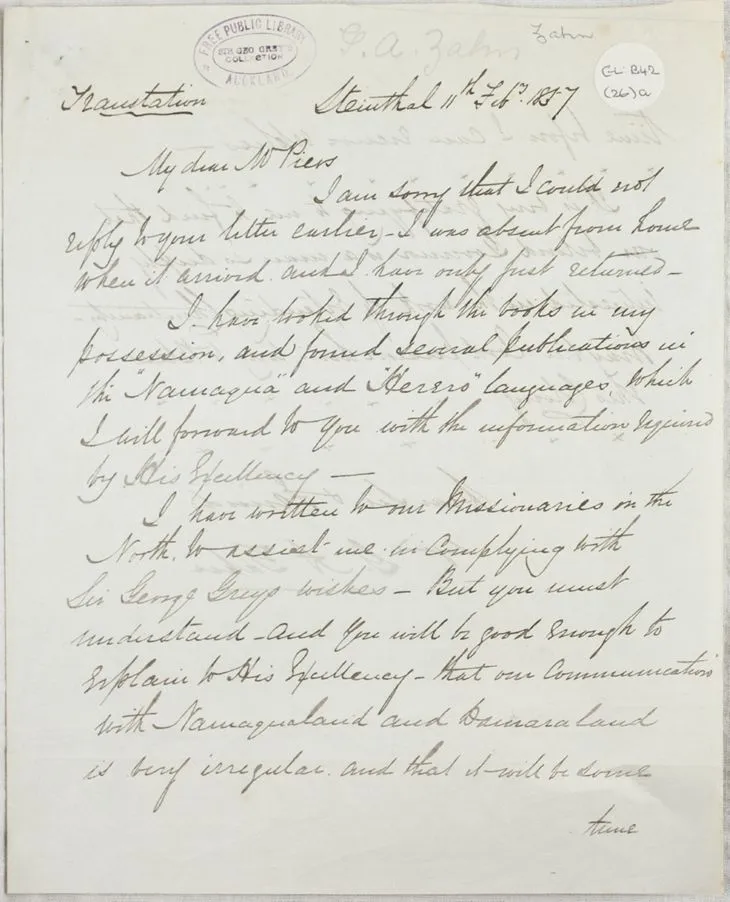 FREE PUBLIC LIBRARY
SIR GEO GREY'S
COLLECTION
AUCKLAND
G. A. Zahn
Zahn
GL: B42
(26)a
Translation
Steinthal 11th Feby. 1857
My dear Mr Piers
I am sorry that I could not
reply to your letter earlier - I was absent from home
when it arrived and I have only just returned -
I have looked through the books in my
possession, and found several publications in
the "Namaqua" and "Herero" languages, which
I will forward to you with the information required
by His Excellency -
I have written to our Missionaries in the
North, to assist me in complying with
Sir George Greys wishes - But you must
understand - and you will be good enough to
explain to His Excellency - that our communication
with Namaqualand and Damaraland
is very irregular and that it will be some
time